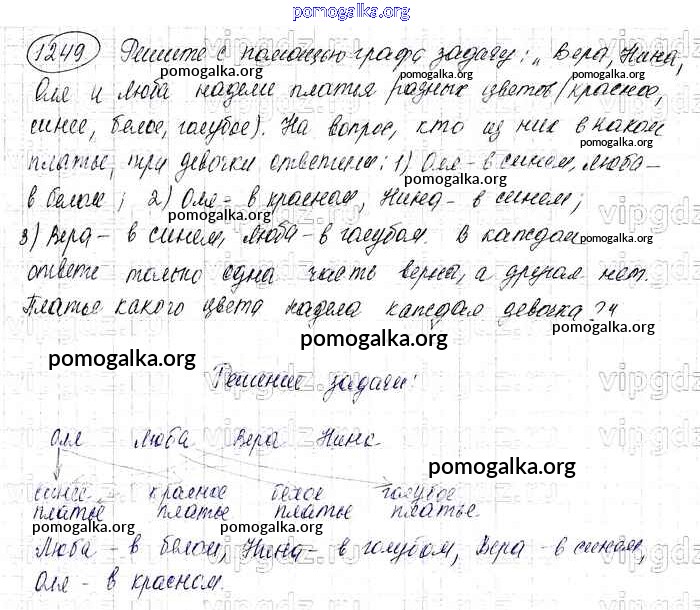 pomogalka.org
1249 Решите с помощью графа задачу: „Вера, Нина,
pomogalka.org pomogalka.org pomogalka.org
Оля и Люба надели платья разных цветов (красное,
синее, белое, голубое). На вопрос, кто из них в каком
pomogalka.org
платье, три девочки ответили: 1) Оля - в синем, Люба -
в белом; 2) Оля - в красном, Нина - в синем;
pomogalka.org pomogalka.org
3) Вера - в синем, Люба - в голубом. В каждом
pomogalka.org
ответе только одна часть верна, а другая нет.
Платье какого цвета надела каждая девочка?"
pomogalka.org pomogalka.org
pomogalka.org
Решение задачи:
Оля Люба Вера Нина
pomogalka.org
синее красное белое голубое
платье платье платье платье.
pomogalka.org pomogalka.org pomogalka.org
Люба - в белом, Нина - в голубом, Вера - в синем,
Оля - в красном.
pomogalka.org